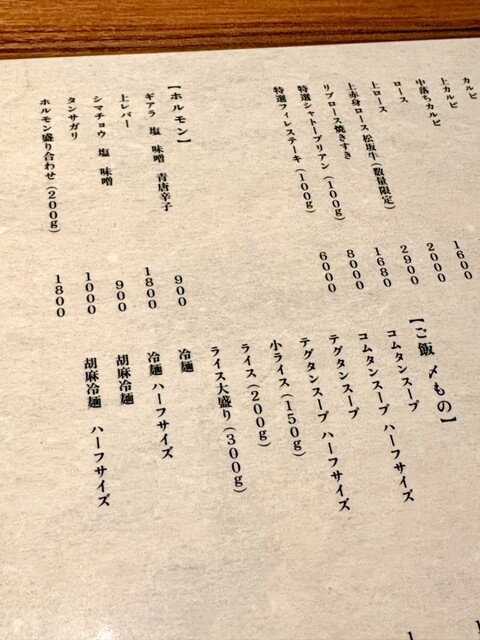 カルビ
上カルビ
中落ちカルビ
ロース 1600
上ロース 2000
上赤身ロース 松坂牛(数量限定) 2900
リブロース焼きすき 1680
特選シャトーブリアン(100g) 8000
特選フィレステーキ(100g) 6000
【ホルモン】
ギアラ 塩 味噌 青唐辛子 900
上レバー 1800
シマチョウ 塩 味噌 900
タンサガリ 1000
ホルモン盛り合わせ(200g) 1800
【ご飯〆もの】
コムタンスープ
コムタンスープ ハーフサイズ
テグタンスープ
テグタンスープ ハーフサイズ
小ライス(150g)
ライス(200g)
ライス大盛り(300g)
冷麺
冷麺 ハーフサイズ
胡麻冷麺
胡麻冷麺 ハーフサイズ